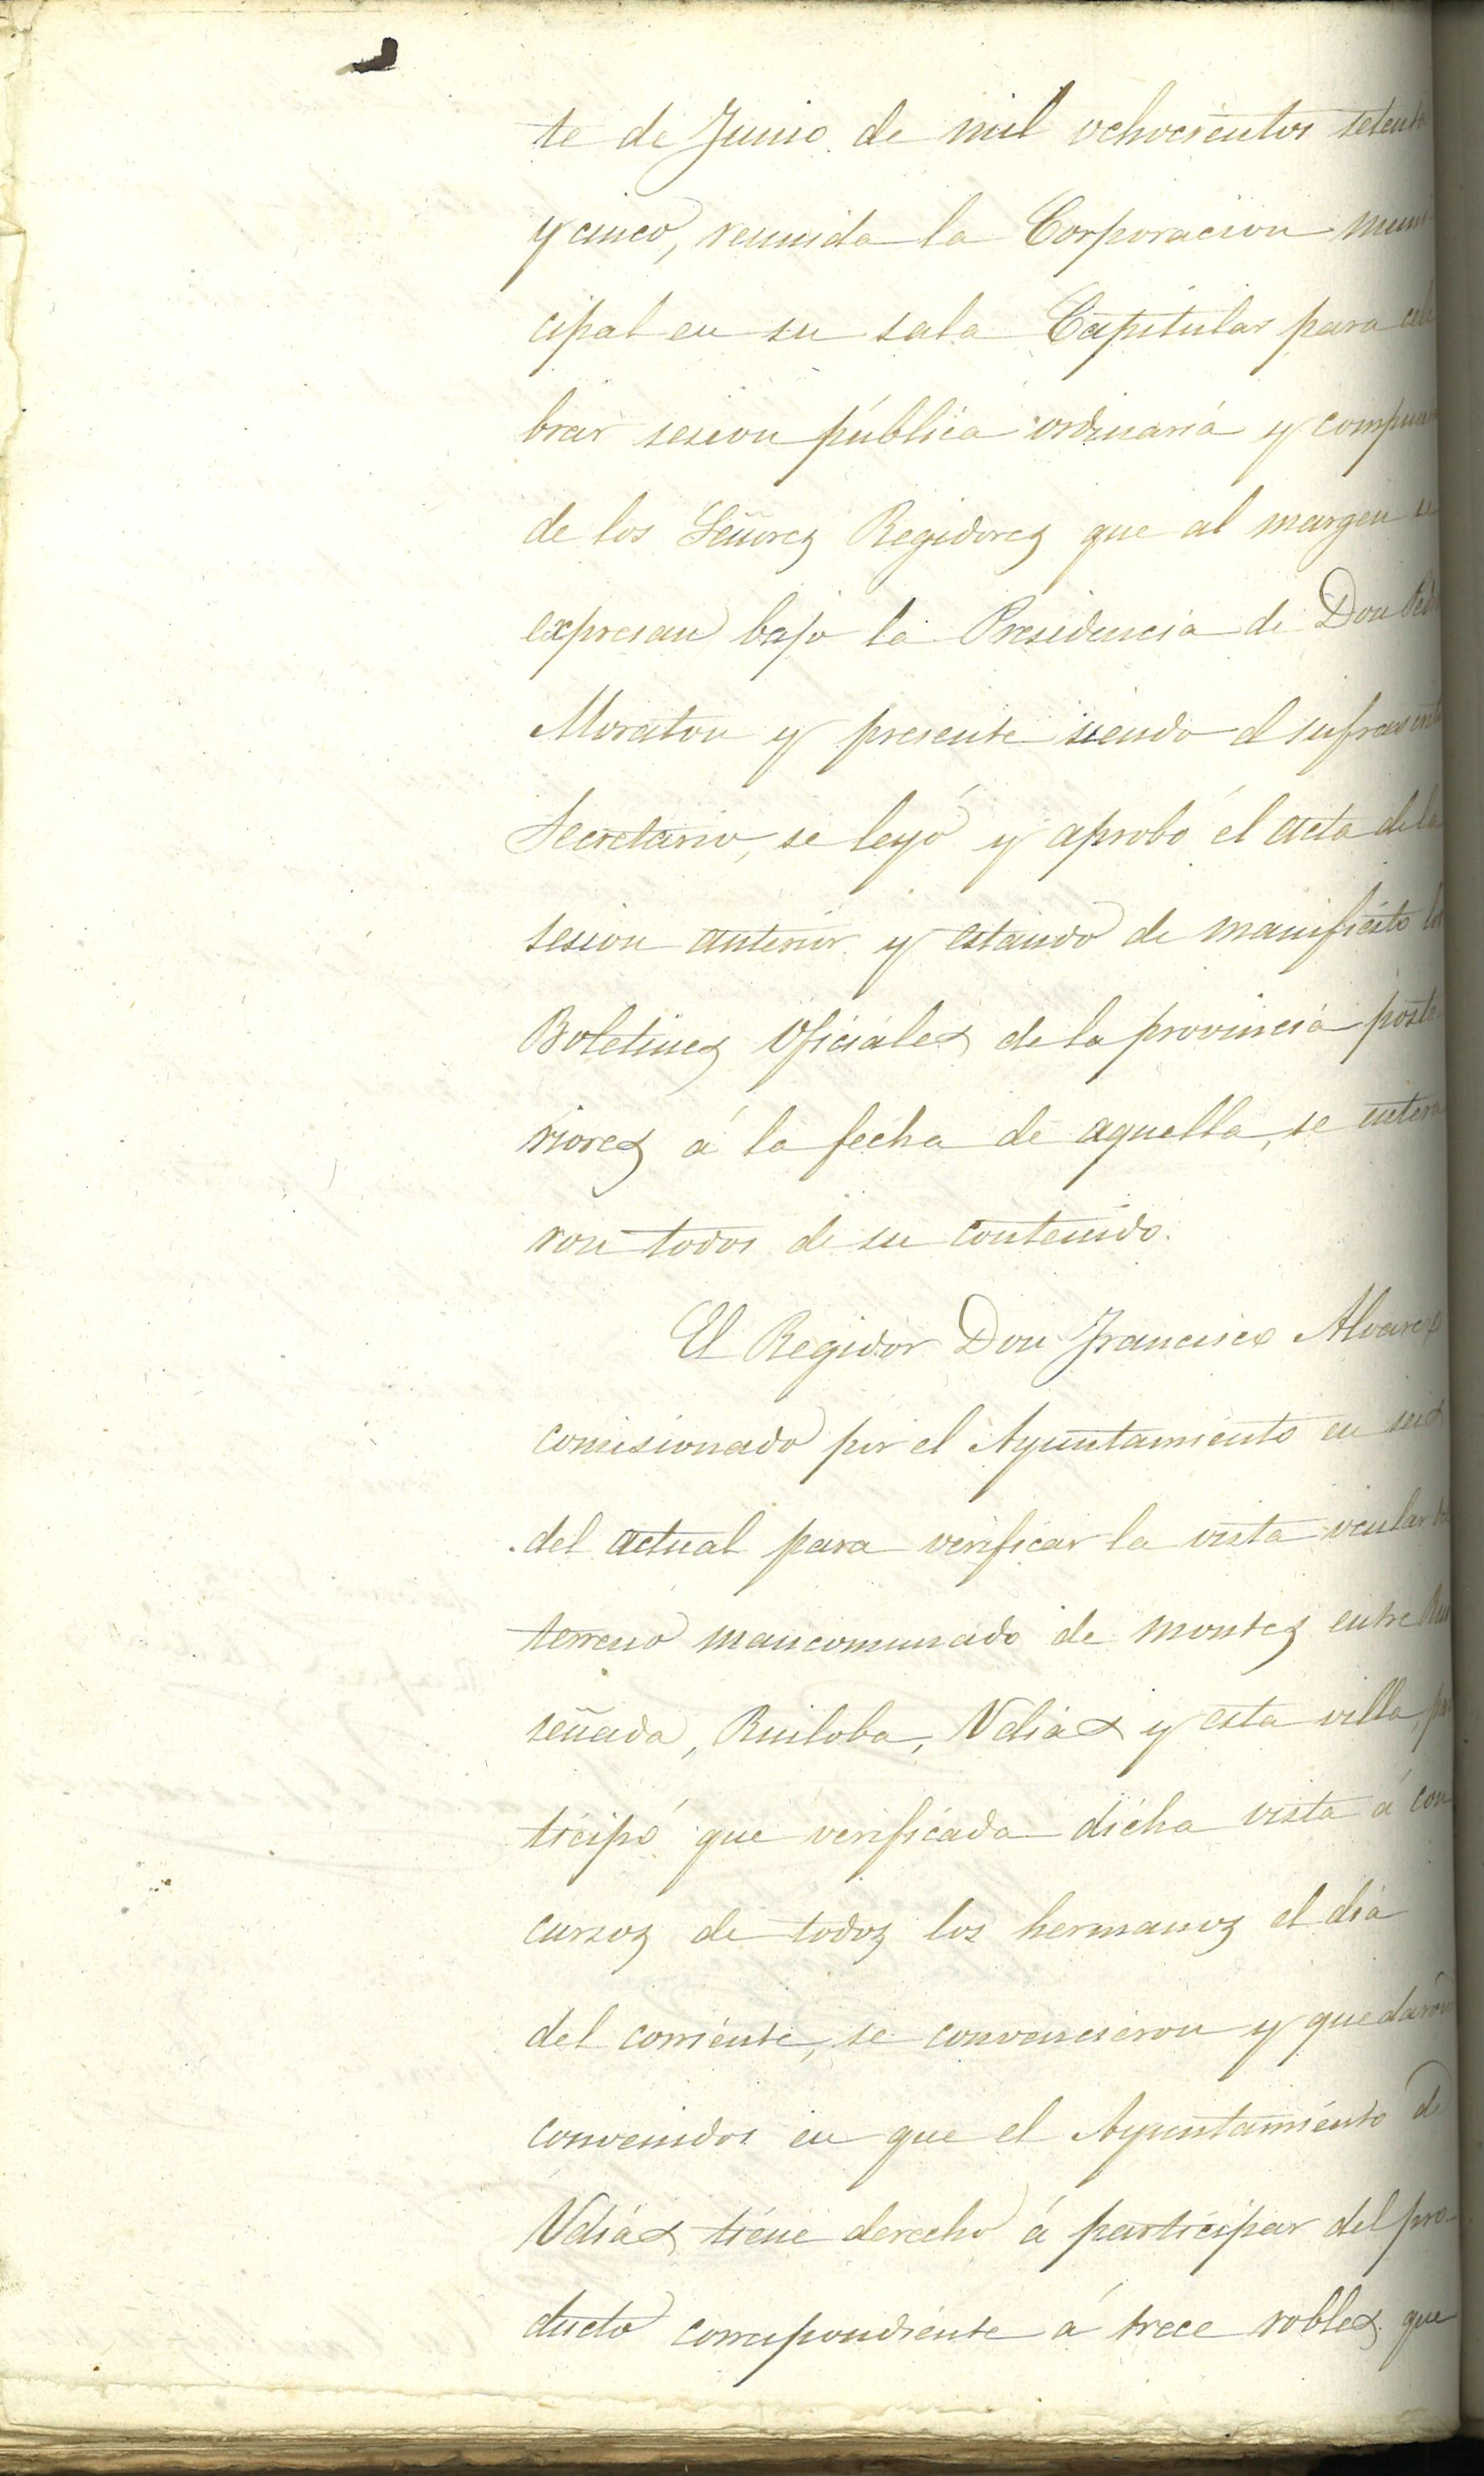 te de Junio de mil ochocientos setenta
y cinco, reunida la Corporacion muni
cipal en su sala Capitular para cele
brar sesion pública ordinaria y compuesta
de los Señores Regidores que al margen se
expresan bajo la Presidencia de Don Pedro
Moraton y presente siendo el infrascrito
Secretario, se leyó y aprobó el acta de la
sesion anterior y estando de manifiesto los
Boletines Oficiales de la provincia poste-
riores á la fecha de aquella, se entera
ron todos de su contenido.
El Regidor Don Francisco Alvarez
comisionado por el Ayuntamiento en seis
del actual para verificar la vista ocular
terreno mancomunado de montes entre Rui
señada, Ruiloba, Udias y esta villa, par
ticipó que verificada dicha vista á con
cursos de todos los hermanos el dia
del corriente, se convencieron y quedaron
convenidos en que el Ayuntamiento de
Udias tiene derecho á participar del pro-
ducto correspondiente á trece robles que